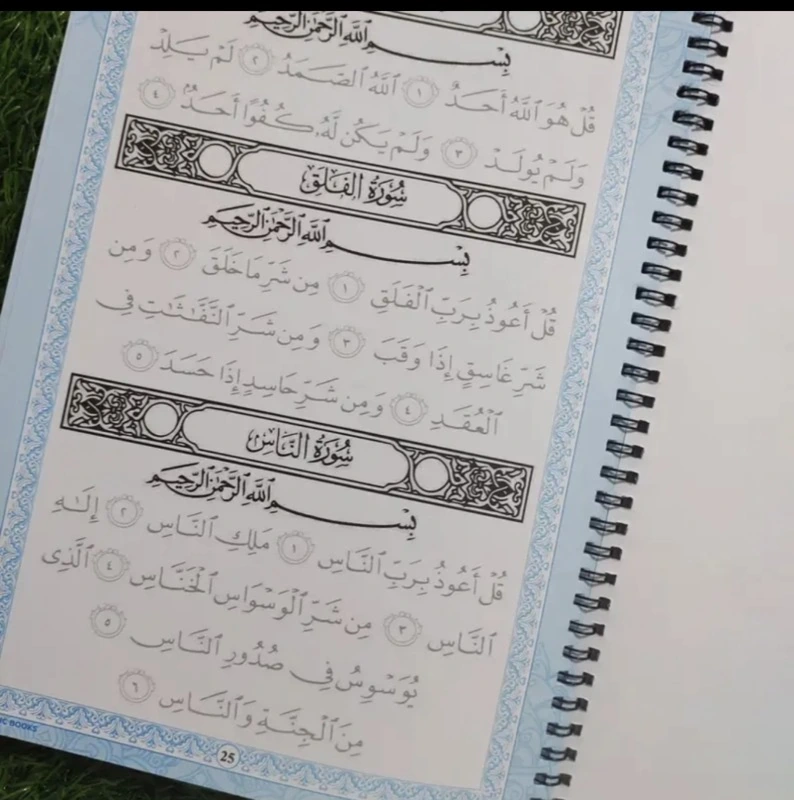 بِسْمِ ٱللَّهِ ٱلرَّحْمَٰنِ ٱلرَّحِيمِ
قُلْ هُوَ ٱللَّهُ أَحَدٌ ١ ٱللَّهُ ٱلصَّمَدُ ٢ لَمْ يَلِدْ
وَلَمْ يُولَدْ ٣ وَلَمْ يَكُن لَّهُۥ كُفُوًا أَحَدٌۢ ٤
سُورَةُ الفَلَقِ
بِسْمِ ٱللَّهِ ٱلرَّحْمَٰنِ ٱلرَّحِيمِ
قُلْ أَعُوذُ بِرَبِّ ٱلْفَلَقِ ١ مِن شَرِّ مَا خَلَقَ ٢ وَمِن
شَرِّ غَاسِقٍ إِذَا وَقَبَ ٣ وَمِن شَرِّ ٱلنَّفَّٰثَٰتِ فِي
ٱلْعُقَدِ ٤ وَمِن شَرِّ حَاسِدٍ إِذَا حَسَدَ ٥
سُورَةُ النَّاسِ
بِسْمِ ٱللَّهِ ٱلرَّحْمَٰنِ ٱلرَّحِيمِ
قُلْ أَعُوذُ بِرَبِّ ٱلنَّاسِ ١ مَلِكِ ٱلنَّاسِ ٢ إِلَٰهِ
ٱلنَّاسِ ٣ مِن شَرِّ ٱلْوَسْوَاسِ ٱلْخَنَّاسِ ٤ ٱلَّذِى
يُوَسْوِسُ فِي صُدُورِ ٱلنَّاسِ ٥
مِنَ ٱلْجِنَّةِ وَٱلنَّاسِ ٦
BOOKS
25